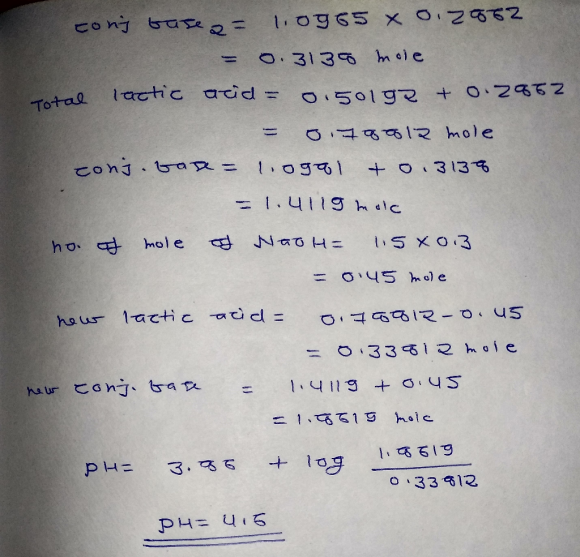 conj base2 = 1.0965 × 0.2862
= 0.3138 mole
Total lactic acid = 0.50192 + 0.2862
= 0.78812 mole
conj. base = 1.0981 + 0.3138
= 1.4119 mole
no. of mole of NaOH = 1.5 × 0.3
= 0.45 mole
new lactic acid = 0.78812 - 0.45
= 0.33812 mole
new conj. base = 1.4119 + 0.45
= 1.8619 mole
PH = 3.86 + log 1.8619 / 0.33812
PH = 4.6